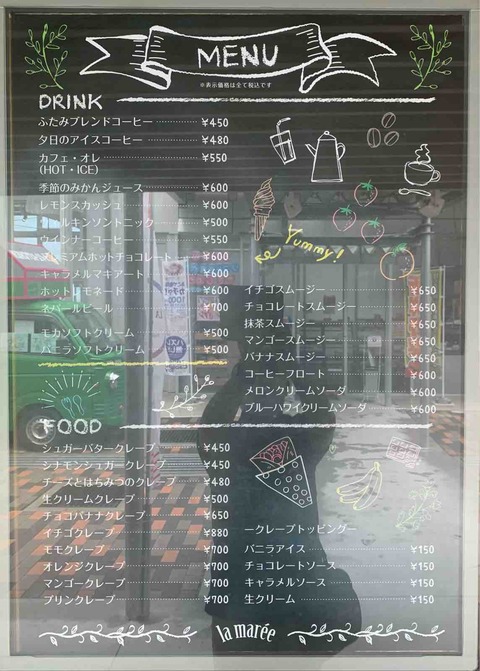 MENU
※表示価格は全て税込です
DRINK
ふたみブレンドコーヒー ¥450
夕日のアイスコーヒー ¥480
カフェ・オレ ¥550
(HOT・ICE)
季節のみかんジュース ¥600
レモンスカッシュ ¥600
ウィルキンソントニック ¥500
ウインナーコーヒー ¥550
プレミアムホットチョコレート ¥600
キャラメルマキアート ¥600
ホットレモネード ¥600
ネパールビール ¥700
モカソフトクリーム ¥500
バニラソフトクリーム ¥500
Yummy!
イチゴスムージー ¥650
チョコレートスムージー ¥650
抹茶スムージー ¥650
マンゴースムージー ¥650
バナナスムージー ¥650
コーヒーフロート ¥600
メロンクリームソーダ ¥600
ブルーハワイクリームソーダ ¥600
FOOD
シュガーバタークレープ ¥450
シナモンシュガークレープ ¥450
チーズとはちみつのクレープ ¥480
生クリームクレープ ¥500
チョコバナナクレープ ¥650
イチゴクレープ ¥880
モモクレープ ¥700
オレンジクレープ ¥700
マンゴークレープ ¥700
プリンクレープ ¥700
ークレープトッピングー
バニラアイス ¥150
チョコレートソース ¥150
キャラメルソース ¥150
生クリーム ¥150
la marée